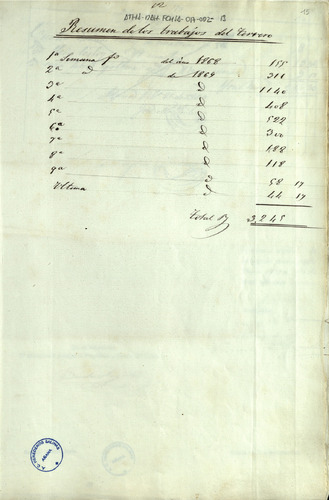 02
ATHA-DAH-FCHLA-019-002
15
Resumen de los trabajos del Tercero
1ª Semana del año 1868 155
2ª id de 1869 311
3ª 1140
4ª 408
5ª 522
6ª 300
7ª 188
8ª 118
9ª 58 17
Ultima 44 17
Total 3,245